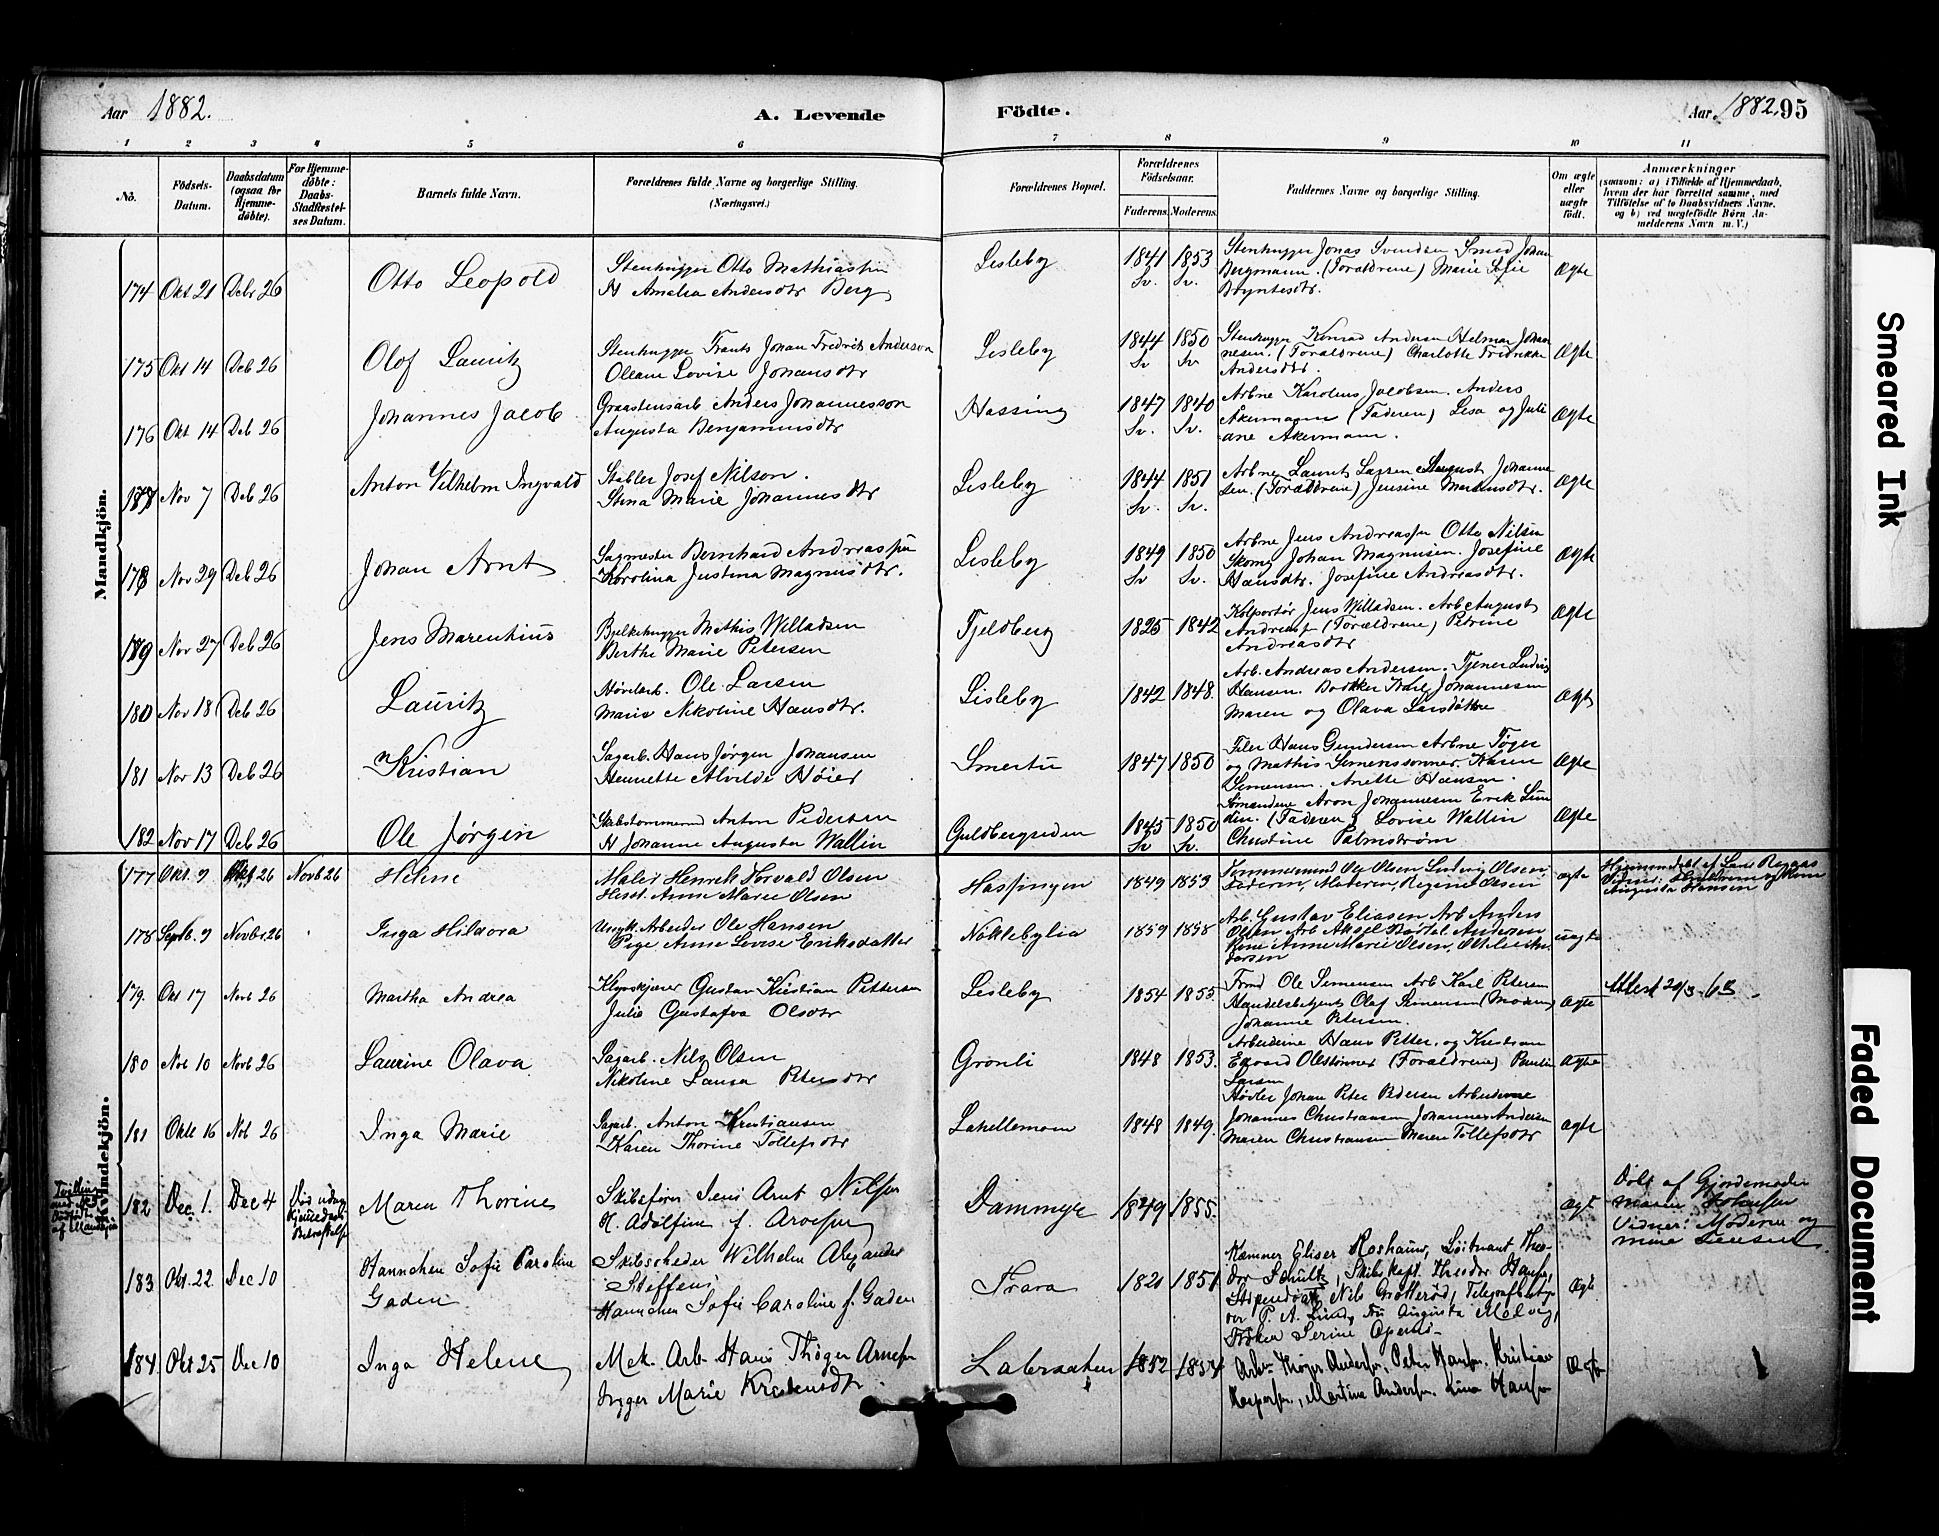 Aar 1882.
A. Levende
Födte.
Aar 1882. 95
1 2 3 4 5 6 7 8 9 10 11
No.
Födsels-
Datum.
Daabsdatum
(ogsaa for
Hjemme-
døbte).
For Hjemme-
døbte:
Daabs-
Stadfæstel-
ses Datum.
Barnets fulde Navn.
Forældrenes fulde Navne og borgerlige Stilling.
(Næringsvei.)
Forældrenes Bopæl.
Forældrenes
Födselsaar.
Faderens. Moderens.
Faddernes Navne og borgerlige Stilling.
Om ægte
eller
uægte
födt.
Anmærkninger
(saasom: a) i Tilfælde af Hjemmedaab,
hvem der har forrettet samme, med
Tilföielse af to Daabsvidners Navne,
og b) ved uægtefödte Börn An-
melderens Navn m. V.)
Mandkjön.
174 Okt 21 Debr 26 Otto Leopold
Stenhugger Otto Mathiassen
H Amalia Andersdtr Berg
Lisleby 1841 Sv. 1853 Sv.
Stenhugger Jonas Svendsen Smed Johan
Bergmann. (Forældrene) Marie Sofie
Bryntesdtr.
Ægte
175 Okt 14 Deb 26 Olof Lauritz
Stenhugger Frants Johan Fredrik Anderson
Oleane Lovise Johansdtr
Lisleby 1844 Sv 1850 Sv
Stenhugger Konrad Andersen Helmer Johan
nesen. (Forældrene) Charlotte Fredrikke
Andersdtr.
Ægte
176 Okt 14 Deb 26 Johannes Jacob
Graastensarb Anders Johannesson
Augusta Benjaminsdtr
Hassing 1847 Sv. 1840 Sv.
Arbne Karolius Jacobsen. Anders
Åkermann (Faderen) Lisa og Juli
ane Akermann.
Ægte
177 Nov 7 Deb 26 Anton Vilhelm Ingvald
Stabler Josef Nilson.
Stina Marie Johannesdtr
Lisleby 1844 Sv. 1851 Sv.
Arbne Laurits Larsen August Johanne
sen. (Forældrene) Jensine Martinsdtr.
Ægte
178 Nov 29 Deb 26 Johan Arnt
Sagmester Bernhard Andreassen
Karolina Justina Magnusdtr.
Lisleby 1849 Sv 1850 Sv.
Arbne Jens Andreassen Otto Nilsen
Skomg Johan Magnusen. Josefine
Hansdtr. Josefine Andreasdtr.
Ægte
179 Nov 27 Deb 26 Jens Marentius
Bjelkehugger Mathis Willadsen
Berthe Marie Petersen
Fjeldberg 1825 1842
Kolportør Jens Willadsen. Arb August
Andreass (Forældrene)
Andreasdtr
Ægte
180 Nov 18 Deb 26 Lauritz
Høvlarb. Ole Larsen
Marie Nikoline Hansdtr.
Lisleby 1842 1848.
Arb. Andreas Andersen. Tjener Ludvig
Hansen. Karl Johannesen
Maren og Olava Larsdøttre
Ægte
181 Nov 13 Deb 26 Kristian
Sagarb. Hans Jørgen Johansen
Hennette Alvilde Høier
Smertu 1847 1850
Filer Hans Gundersen Arbne Tøger
og Mathis Simenssønner, Karen
Simensen. Anette Hansen.
Ægte
182 Nov 17 Deb 26 Ole Jørgen
Skibstømmermd Anton Pedersen
H Johanne Augusta Wallin
Guldbergsiden 1845 Sv 1850 Sv.
Sømændene Aron Johannesen Erik Lun
din. (Faderen) Lovise Wallin
Christine Palmstrøm
Ægte
Kvindekjön.
177 Okt. 9 Okt 26 Novb 26 Helene
Maler Henrik Horvald Olsen
Hust. Anne Marie Olsen
Hassingen 1849 1853
Tømmermand Ole Olsen Ludvig Olsen,
Faderen, Moderen, Regine Olsen
ægte
Augusta Hansen
178 Septb. 9 Novbr. 26 Inga Hildora
Ungk. Arbeider Ole Hansen
Pige Anne Lovise Eriksdatter
Nøklebylia 1859 1858
Arb. Gustav Eliasen Arb Anders
Olsen Arb Aksel Bertel Andersen
Pine Anne Marie Olsen,
uægte
179. Okt 17 Novb 26 Martha Andrea
Klipskjærer Gustav Kristian Pettersen
Julie Gustafva Olsdtr
Lisleby 1854 1855.
Frmd Ole Simensen Arb Karl Petersen
Handelsbetjent Olaf Simensen (Moderen)
Johanne Petersen.
Ægte
Attest 20/3-63
180 Nob 10 Novb 26 Laurine Olava
Sagarb. Nils Olsen
Nikoline Laura Petersdtr
Grønli 1848 1853.
Arbeiderne Hans Petter. og Kristian
Edvard Olssønner (Forældrene) Pauline
Larsen
Ægte
181 Okt 16 Nob 26 Inga Marie
Sagarb. Anton Kristiansen
Karen Thorine Tollefsdtr
Lahellemoen 1848 1849.
Høvler Johan Peter Pedersen Arbeiderne
Johannes Christiansen Johannes Andersen
Maren Christiansen Maren Tollefsdtr
ægte
182 Dec. 1. Dec 4 Maren Thorine
Skibsfører Jens Arnt Nilsen
H. Adolfine f. Arvesen
Dammyr 1849 1855.
Ægt.
Døbt af Gjordemoder
Maren Johansen
Vidner: Moderen og
Mina Jensen.
183 Okt. 22 Dec 10 Hannchen Sofie Caroline
Gaden
Skibsreder Wilhelm Alexander
Steffens
Hannchen Sofie Caroline f. Gaden
Trara 1821 1851
Kæmner Eliser Roshauw, Løitnant Theo-
dor Schultz, Skibskapt. Theodor Hansen,
Nils Grøtterød, Telegrafbesty-
rer P. A. Lund, Augusta Melvig,
Frøken Serine Openes-
Ægt.
184. Okt 25 Dec 10 Inga Helene
Mek. Arb. Hans Thøger Arnesen
Inger Marie Kristensdtr
Labraaten 1852 1854
Arb. Thøger Andersen, Peter Hansen, Kristian
Kaspersen, Martine Andersen. Lina Hansen
Ægt
Smeared Ink
Faded Document